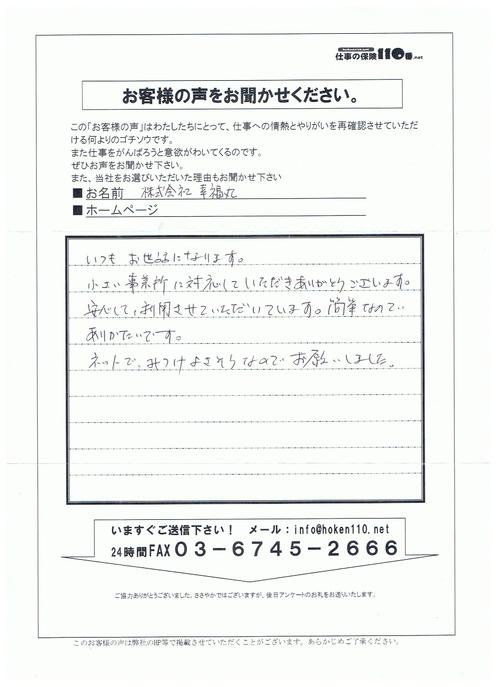 仕事の保険110番.net
お客様の声をお聞かせください。
この「お客様の声」はわたしたちにとって、仕事への情熱とやりがいを再確認させていただ
ける何よりのゴチソウです。
また仕事をがんばろうと意欲がわいてくるのです。
ぜひお声をお聞かせ下さい。
また、当社をお選びいただいた理由もお聞かせ下さい
■お名前 株式会社 幸福丸
■ホームページ
いつも お世話になります。
小エい事業所に対応していただきありがとうございます。
安心して利用させていただいています。簡単なので
ありがたいです。
ネットで、みつけよさそうなので お願いしました。
いますぐご送信下さい! メール:info@hoken110.net
24時間FAX03-6745-2666
ご協力ありがとうございました。ささやかではございますが、後日アンケートのお礼をお送りいたします。
このお客様の声は弊社のHP等で掲載させていただくことがございます。あらかじめご了承ください。